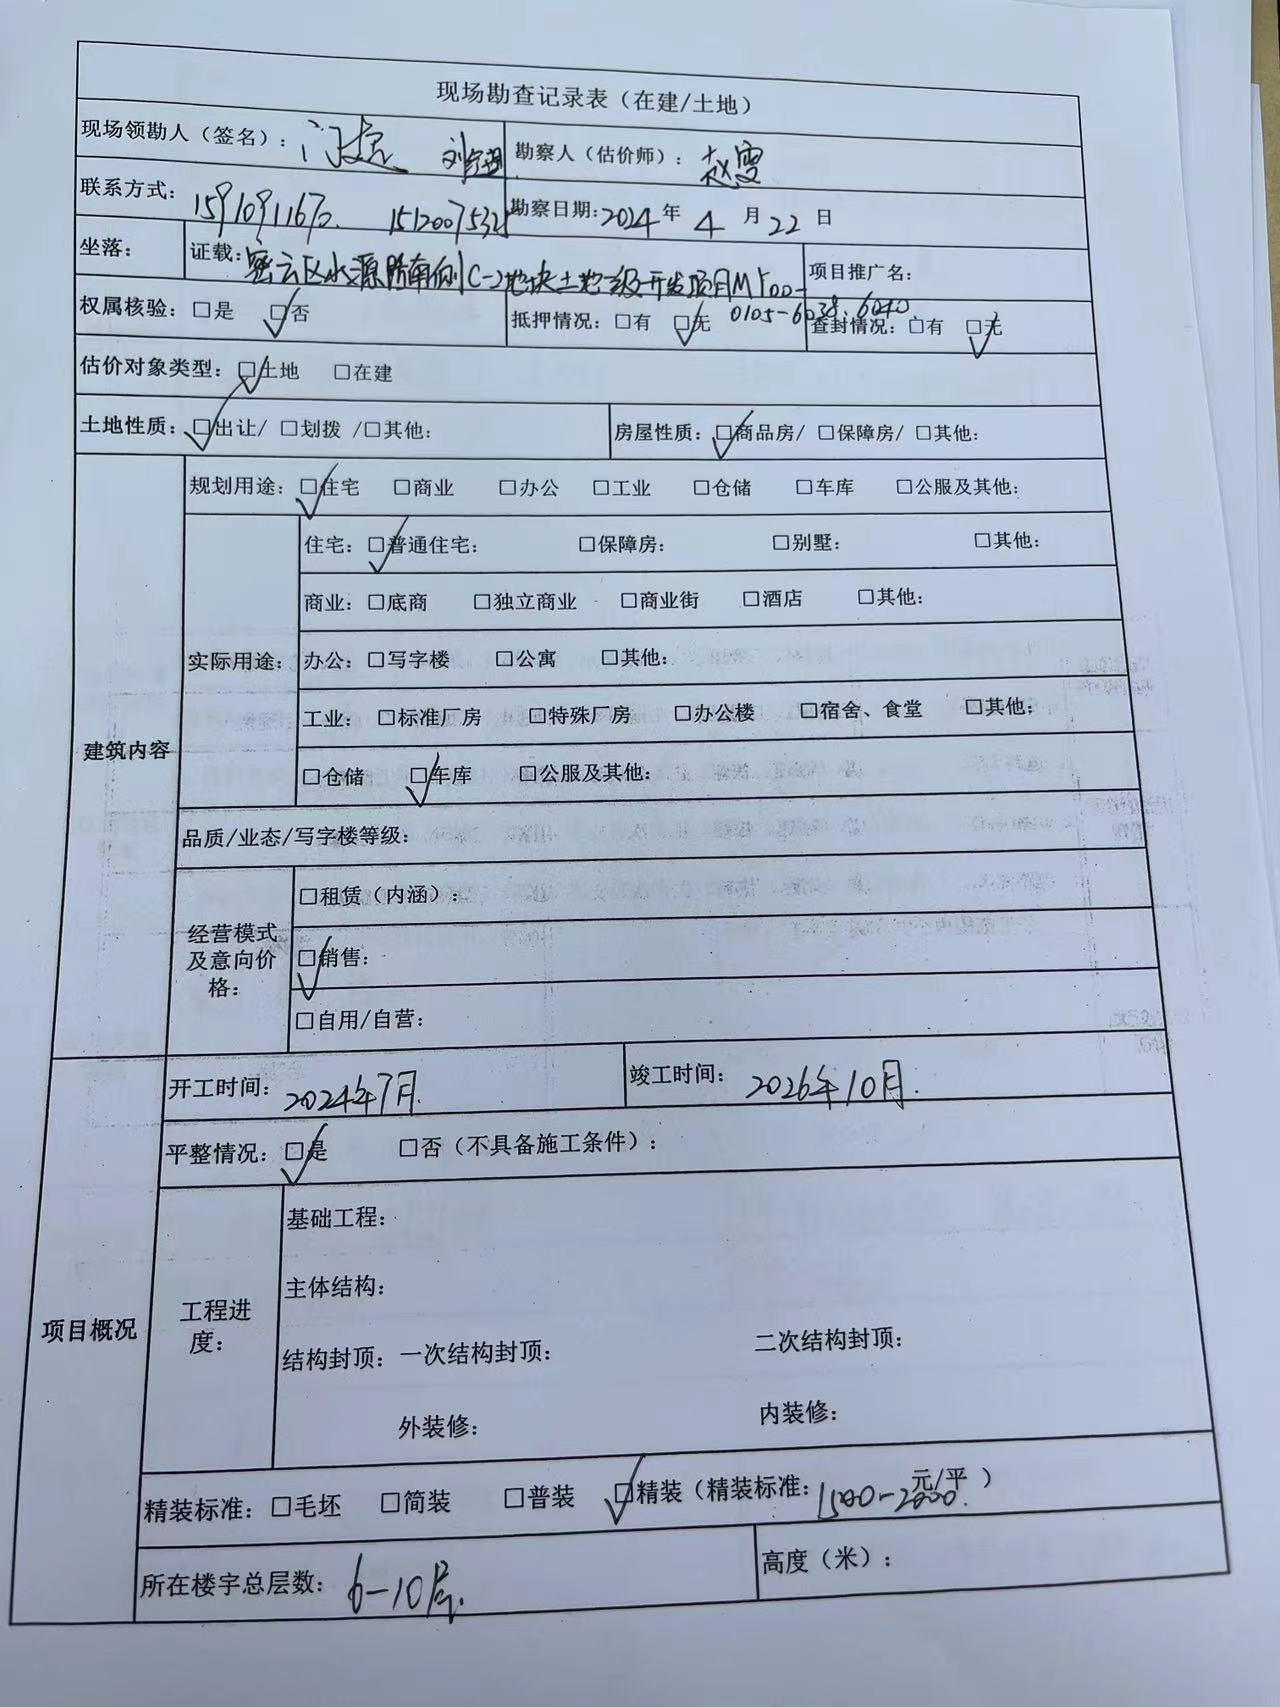 现场勘查记录表（在建/土地）
现场领勘人（签名）： 门 刘 勘察人（估价师）： 赵雯
联系方式： 15910911670. 15120075325 勘察日期:2024年 4 月 22 日
坐落： 证载: 密云区水源路南侧C-2地块土地一级开发项目MY00- 0105-6038、6040 项目推广名:
权属核验: □是 ☑否 抵押情况: □有 ☑无 查封情况: □有 ☑无
估价对象类型: ☑土地 □在建
土地性质: ☑出让/ □划拨 /□其他: 房屋性质: ☑商品房/ □保障房/ □其他:
建筑内容
规划用途: ☑住宅 □商业 □办公 □工业 □仓储 □车库 □公服及其他:
实际用途:
住宅: ☑普通住宅: □保障房: □别墅: □其他:
商业: □底商 □独立商业 □商业街 □酒店 □其他:
办公: □写字楼 □公寓 □其他:
工业: □标准厂房 □特殊厂房 □办公楼 □宿舍、食堂 □其他:
□仓储 ☑车库 □公服及其他:
品质/业态/写字楼等级:
经营模式
及意向价
格:
□租赁（内涵）:
☑销售:
□自用/自营:
项目概况
开工时间: 2024年7月. 竣工时间: 2026年10月.
平整情况: ☑是 □否（不具备施工条件）:
工程进
度:
基础工程:
主体结构:
结构封顶: 一次结构封顶: 二次结构封顶:
外装修: 内装修:
精装标准: □毛坯 □简装 □普装 ☑精装（精装标准: 1500-2000. 元/平 ）
所在楼宇总层数: 6-10层. 高度（米）: